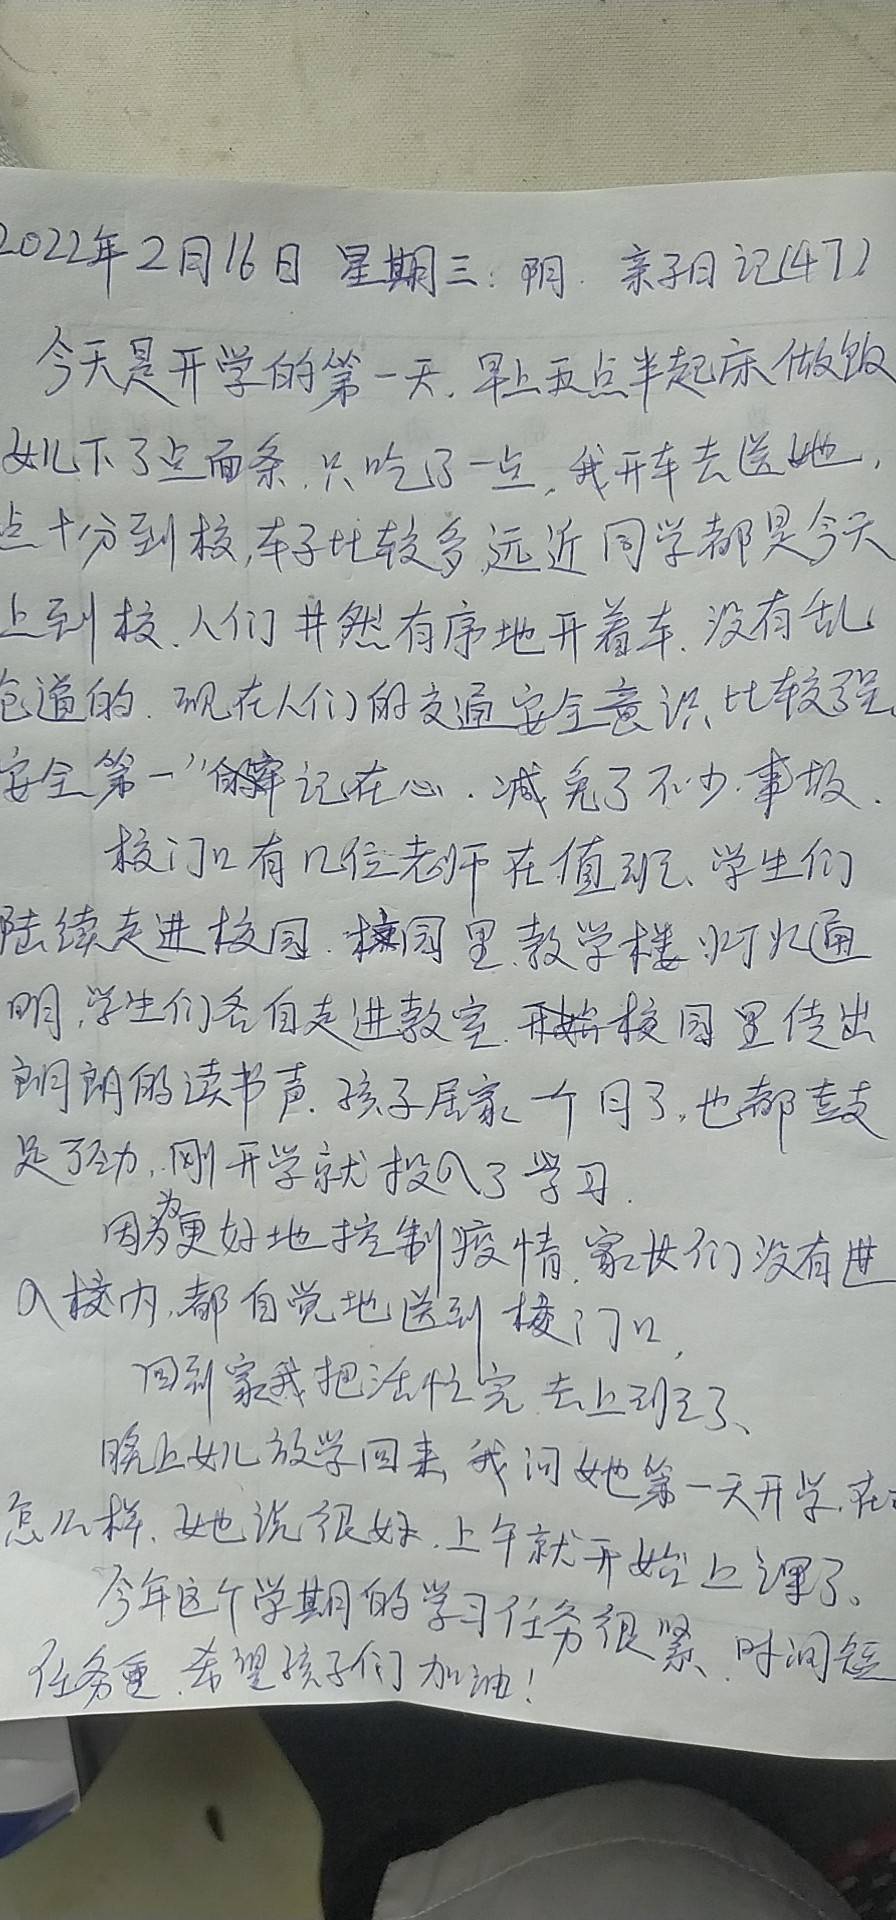 2022年2月16日 星期三:阴. 亲子日记(47)
今天是开学的第一天.早上五点半起床做饭
女儿下了点面条.只吃了一点,我开车去送她,
点十分到校,车子比较多,远近同学都是今天
上到校.人们井然有序地开着车.没有乱
道的.现在人们的交通安全意识比较强
安全第一"的牢记在心.减免了不少事故.
校门口有几位老师在值班、学生们
陆续走进校园.校园里教学楼灯火通
明,学生们各自走进教室.校园里传出
朗朗的读书声.孩子居家一个月了,也都鼓
足了劲,刚开学就投入了学习.
因为更好地控制疫情,家长们没有进
入校内,都自觉地送到校门口,
回到家我把活忙完去上班了、
晚上女儿放学回来,我问她第一天开学,在
怎么样,她说很好.上午就开始上课了、
今年这个学期的学习任务很紧、时间短
任务重.希望孩子们加油!